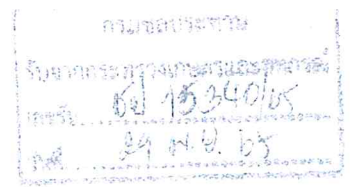 กรมชลประทาน
รับจากกระทรวงเกษตรและสหกรณ์
เลขรับ ชป 15340/65
วันที่ พ.ย. 65